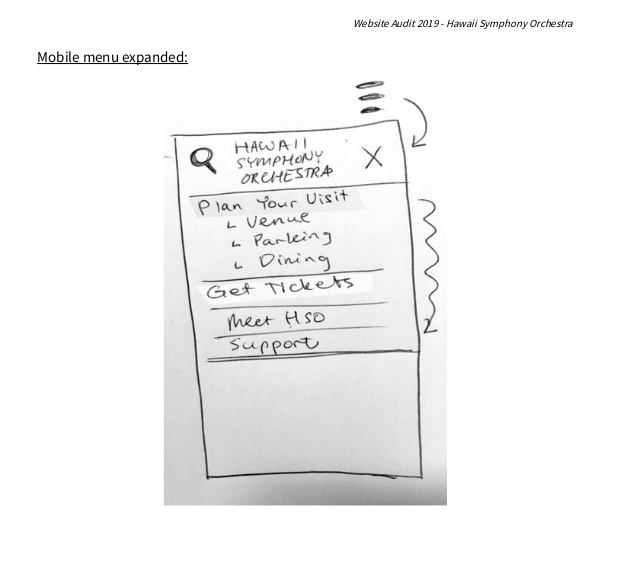 Website Audit 2019 - Hawaii Symphony Orchestra
Mobile menu expanded:
HAWAII
SYMPHONY
ORCHESTRA
X
Plan Your Visit
Venue
Parking
Dining
Get Tickets
Meet HSO
Support